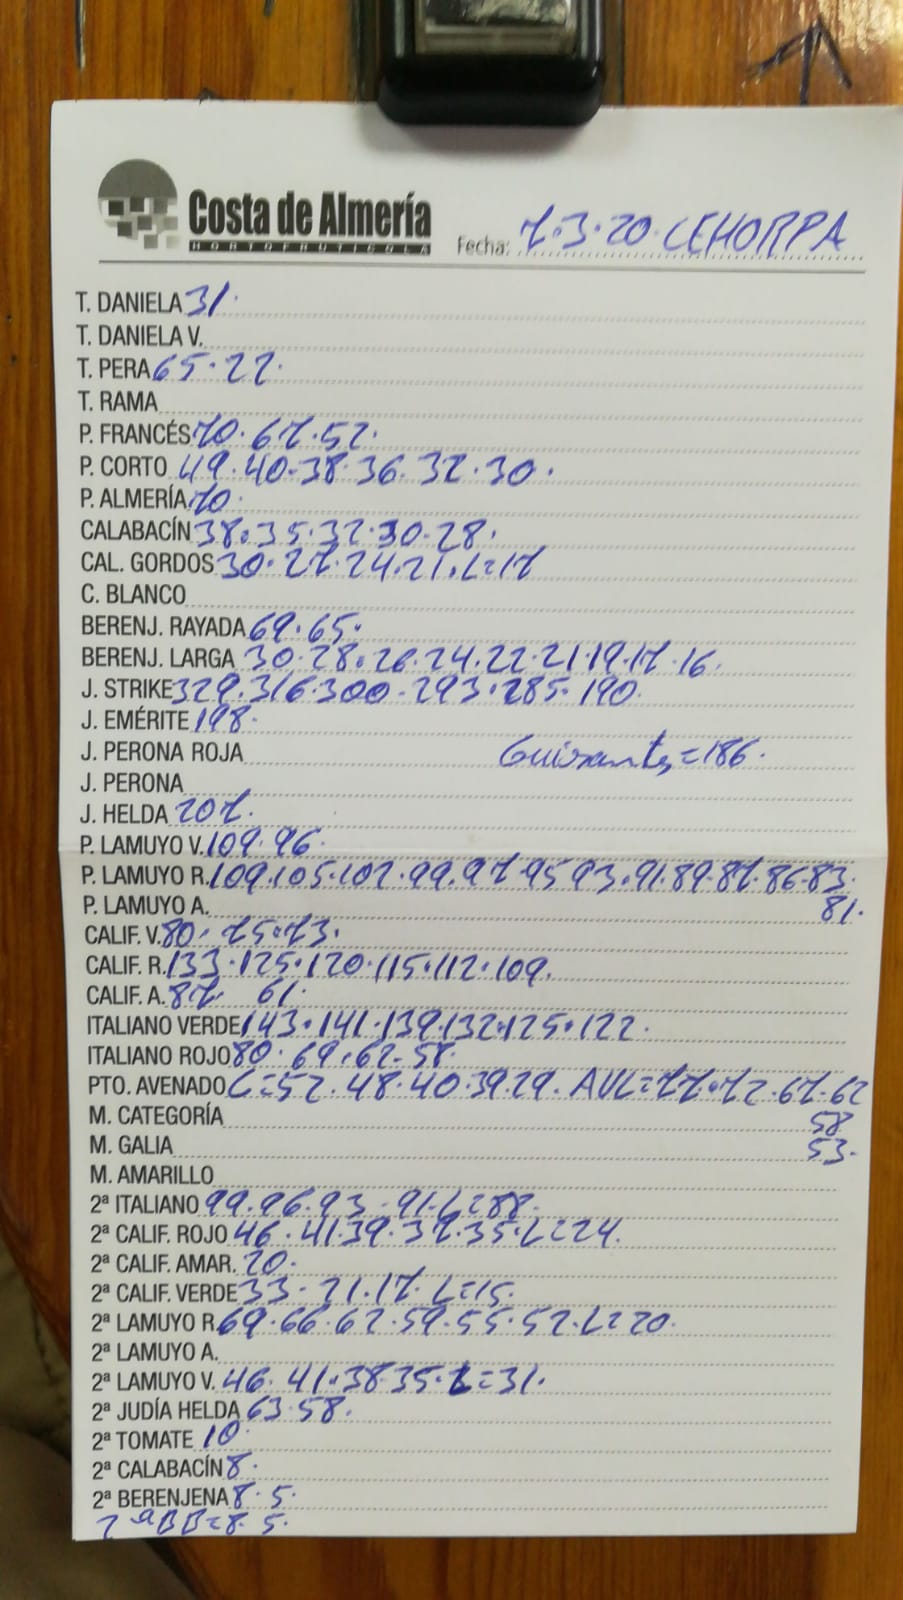 Costa de Almería
HORTOFRUTICOLA
Fecha: 7.3.20. CEHORPA
T. DANIELA 31.
T. DANIELA V.
T. PERA 65.22.
T. RAMA
P. FRANCÉS 70.67.52.
P. CORTO 49.40.38.36.32.30.
P. ALMERÍA 70.
CALABACÍN 38.35.32.30.28.
CAL. GORDOS 30.27.24.21.L=17
C. BLANCO
BERENJ. RAYADA 69.65.
BERENJ. LARGA 30.28.26.24.22.21.19.17.16.
J. STRIKE 329.316.300.293.285.190.
J. EMÉRITE 198.
J. PERONA ROJA Guisantes=186.
J. PERONA
J. HELDA 207.
P. LAMUYO V. 109.96.
P. LAMUYO R. 109.105.102.99.97.95.93.91.89.87.86.83.
P. LAMUYO A. 81.
CALIF. V. 80.75.73.
CALIF. R. 133.125.120.115.112.109.
CALIF. A. 87. 61.
ITALIANO VERDE 143.141.139.132.125.122.
ITALIANO ROJO 80.69.62.58.
PTO. AVENADO C=52.48.40.39.29. AVL=77.72.67.62
M. CATEGORÍA 58
M. GALIA 53.
M. AMARILLO
2ª ITALIANO 99.96.93.91.L=88.
2ª CALIF. ROJO 46.41.39.37.35.L=24.
2ª CALIF. AMAR. 20.
2ª CALIF. VERDE 33.21.17.L=15.
2ª LAMUYO R. 69.66.62.59.55.52.L=20.
2ª LAMUYO A.
2ª LAMUYO V. 46.41.38.35.L=31.
2ª JUDÍA HELDA 63.58.
2ª TOMATE 10.
2ª CALABACÍN 8.
2ª BERENJENA 8.5.
2ª BB=8.5.